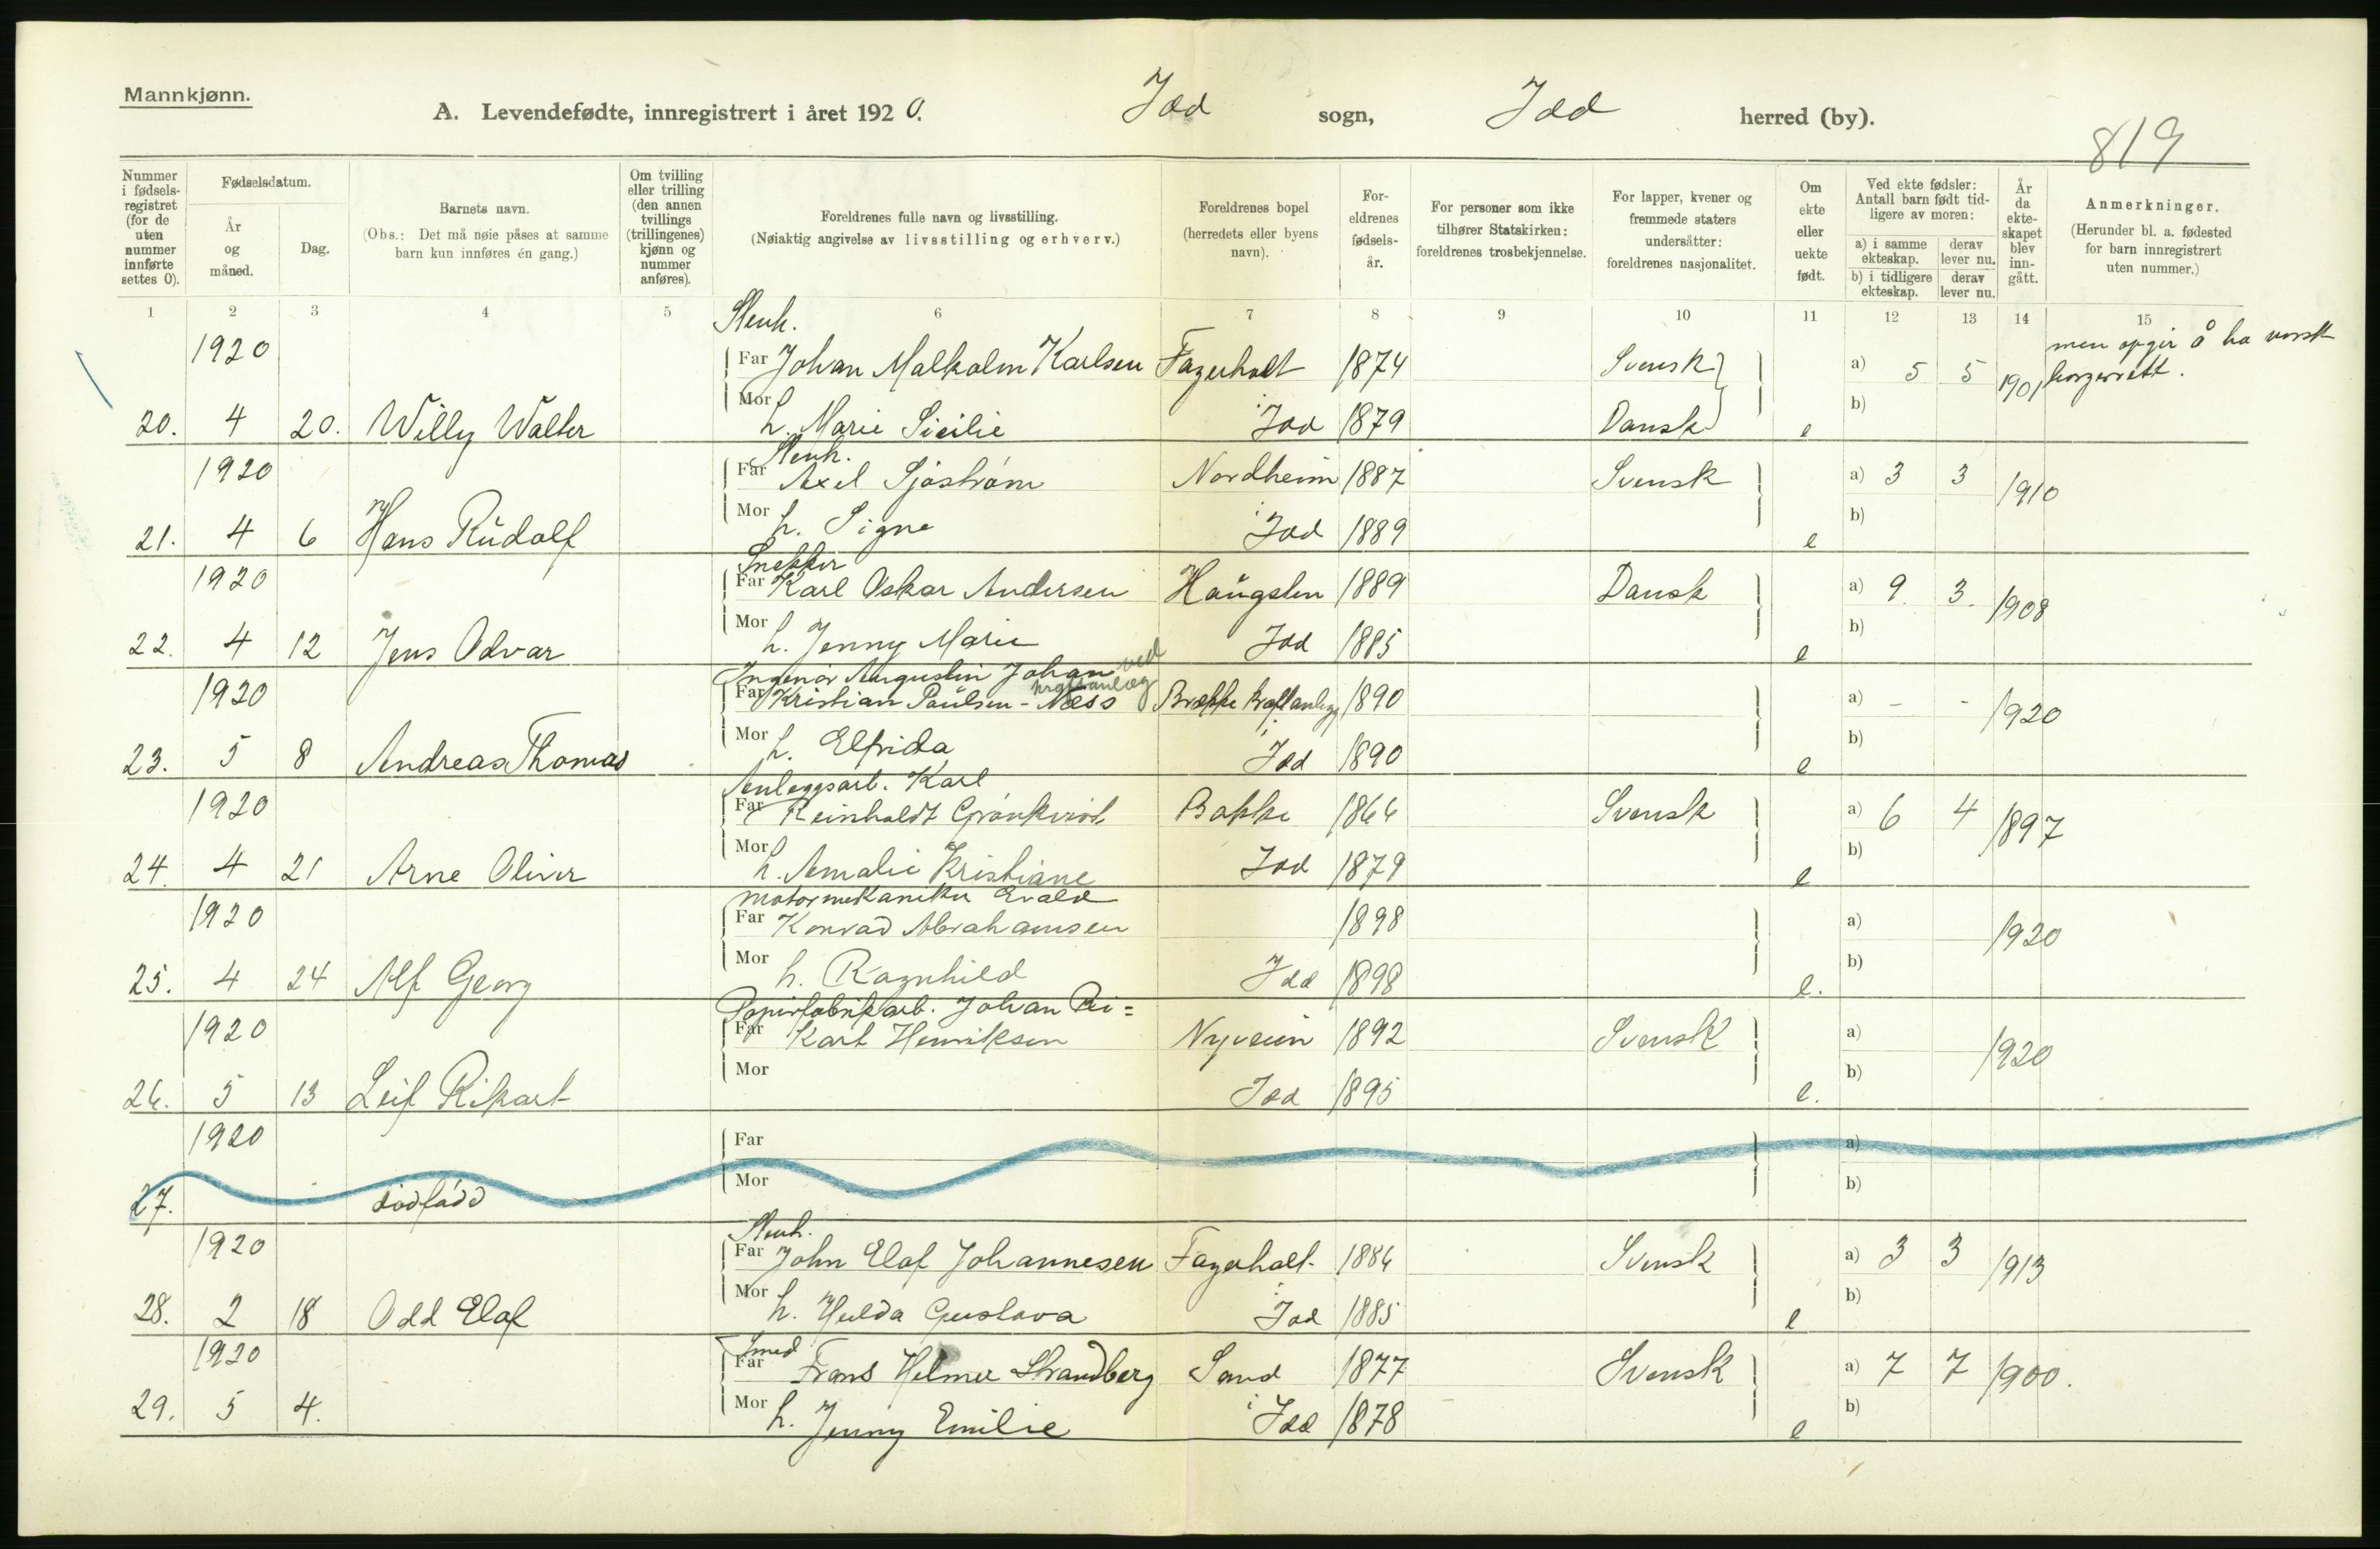 Mannkjønn.
A. Levendefødte, innregistrert i året 1920. Idd sogn, Idd herred (by).
819
Nummer i fødsels-registret (for de uten nummer innførte settes 0).
Fødselsdatum.
År og måned.
Dag.
Barnets navn.
(Obs.: Det må nøie påses at samme barn kun innføres én gang.)
Om tvilling eller trilling (den annen tvillings (trillingenes) kjønn og nummer anføres).
Foreldrenes fulle navn og livsstilling.
(Nøiaktig angivelse av livsstilling og erhverv.)
Foreldrenes bopel (herredets eller byens navn).
For-eldrenes fødsels-år.
For personer som ikke tilhører Statskirken: foreldrenes trosbekjennelse.
For lapper, kvener og fremmede staters undersåtter: foreldrenes nasjonalitet.
Om ekte eller uekte født.
Ved ekte fødsler: Antall barn født tid-ligere av moren:
a) i samme ekteskap. derav lever nu.
b) i tidligere ekteskap. derav lever nu.
År da ekte-skapet blev inn-gått.
Anmerkninger.
(Herunder bl. a. fødested for barn innregistrert uten nummer.)
1 2 3 4 5 6 7 8 9 10 11 12 13 14 15
Stenh. men opgir å ha norsk
1920 Far Johan Malkolm Karlsen Fagerholt 1874 Svensk a) 5 5 1901 borgerrett.
20. 4 20. Willy Walter Mor h. Marie Sicilie i Idd 1879 Dansk e b)
Stenh.
1920 Far Axel Sjøstrøm Nordheim 1887 Svensk a) 3 3 1910
21. 4 6 Hans Rudolf Mor h. Signe i Idd 1889 e b)
Snekker
1920 Far Karl Oskar Andersen Haugsten 1889 Dansk a) 9. 3. 1908
22. 4 12 Jens Odvar Mor h. Jenny Marie Idd 1885 e b)
Ingeniør Augustin Johan ved kraftanlæg
1920 Far Kristian Paulsen-Næss Brække Kraftanlegg 1890 a) - - 1920
23. 5 8 Andreas Thomas Mor h. Elfrida i Idd 1890 e b)
Anleggsarb. Karl
1920 Far Reinholdt Grønkvist Bakke 1866 Svensk a) 6 4 1897
24. 4 21 Arne Oliver Mor h. Amalie Kristiane Idd 1879 e b)
Motormekaniker Evald
1920 Far Konrad Abrahamsen 1898 a) 1920
25. 4 24 Alf Georg Mor h. Ragnhild Idd 1898 e. b)
Papirfabrikarb. Johan Ri=
1920 Far Kart Henriksen Nyveien 1892 Svensk a) 1920
26. 5 13 Leif Rikart Mor Idd 1895 e. b)
1920 Far a)
27. dødfødd Mor b)
Stenh.
1920 Far John Elof Johannesen Fagerholt 1886 Svensk a) 3 3 1913
28. 2 18 Odd Elof Mor h. Hulda Gustava i Idd 1885 e b)
Smed
1920 Far Frans Helmer Strandberg Sand 1877 Svensk a) 7 7 1900.
29. 5 4. Mor h. Jenny Emilie i Idd 1878 e b)